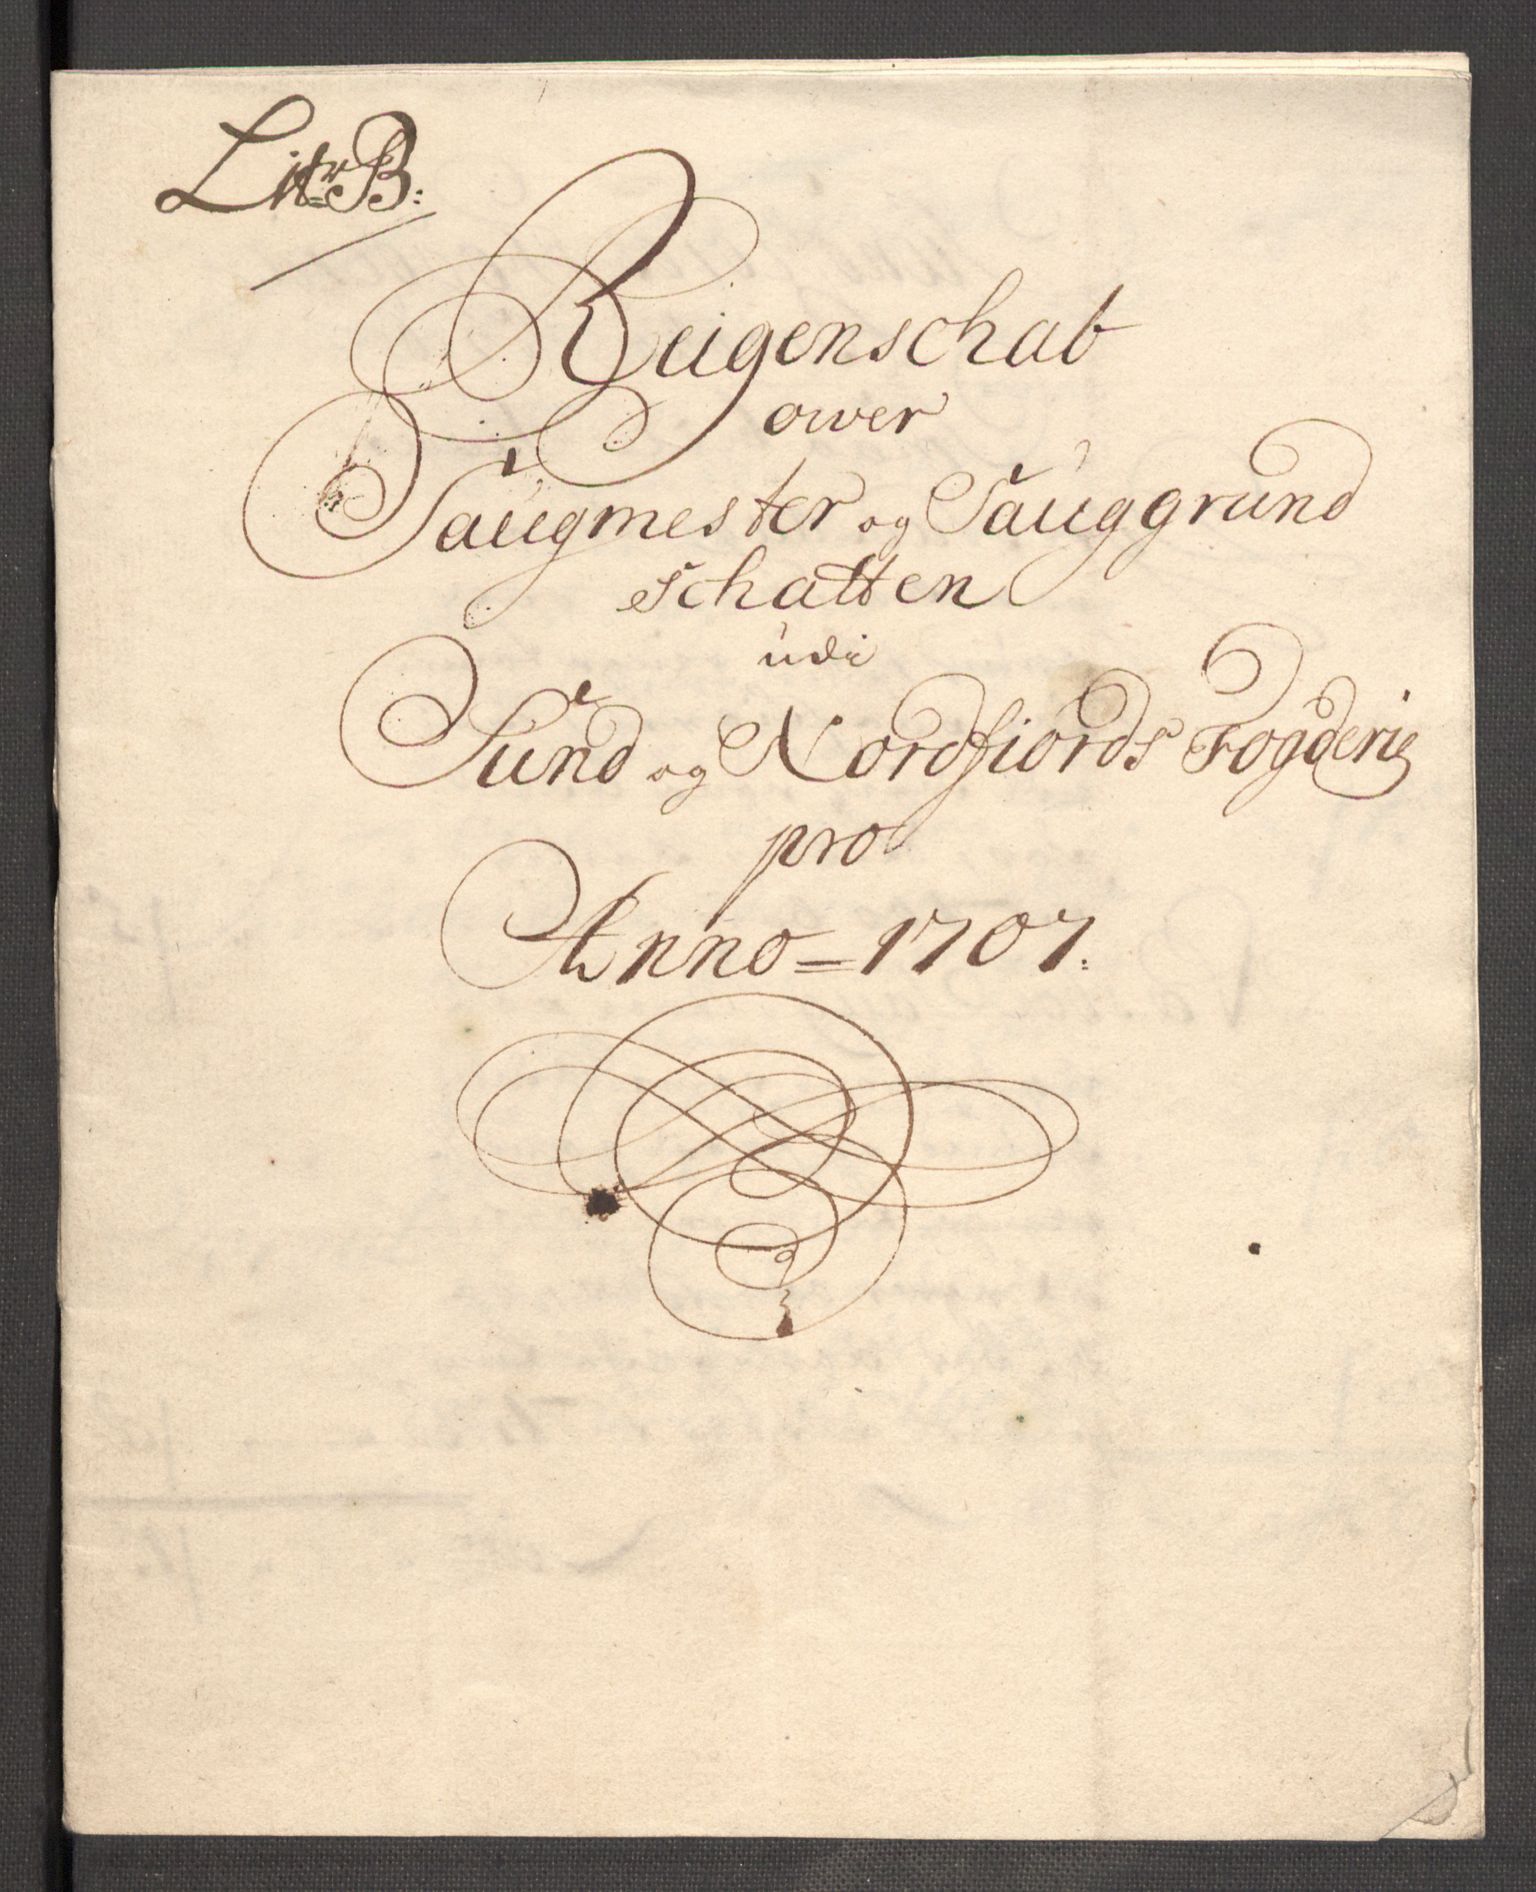 Litr B:
Reigenschab
ower
Saugmester og Sauggrund
schatten
udi
Sund og Nordfiords Fogderie
pro
Anno = 1707: